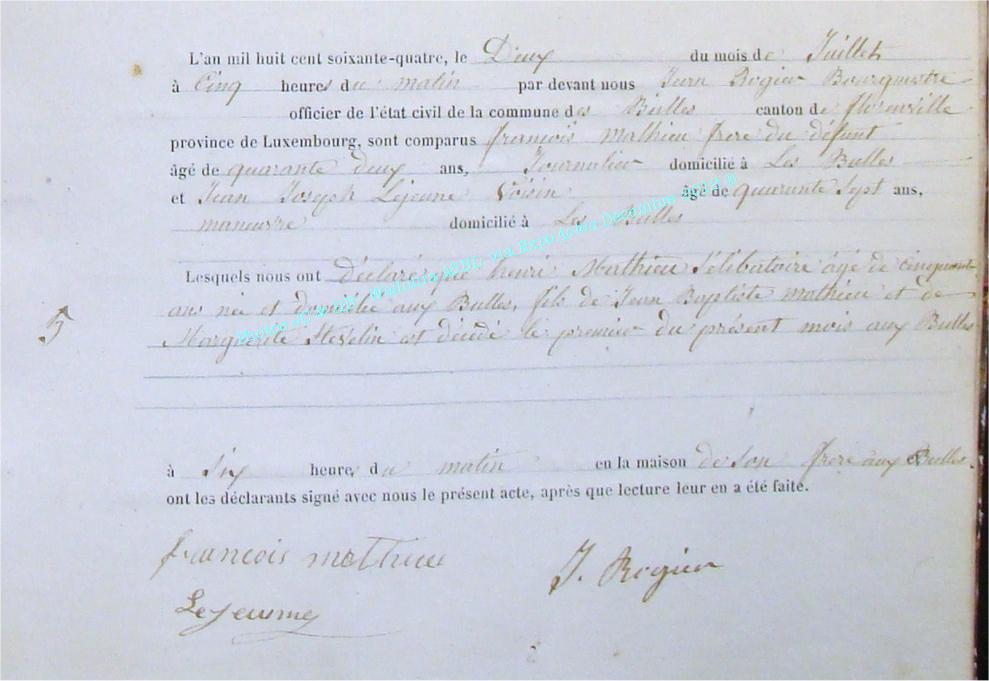 L'an mil huit cent soixante-quatre, le Deux du mois de Juillet
à Cinq heures du matin par devant nous Jean Rogier Bourgmestre
officier de l'état civil de la commune des Bulles canton de florenville
province de Luxembourg, sont comparus françois mathieu frere du défunt
âgé de quarante deux ans, Journalier domicilié à Les Bulles
et Jean Joseph Lejeune Voisin âgé de quarante Sept ans,
maneuvre domicilié à Les Bulles
Lesquels nous ont déclaré que henri Mathieu Célibatoire âgé de cinquante
5
ans née et domicilié aux Bulles, fils de Jean Baptiste mathieu et de
Marguerite est décédé le premier du présent mois aux Bulles
à Six heures du matin en la maison de Son frere aux Bulles.
ont les déclarants signé avec nous le présent acte, après que lecture leur en a été faite.
francois mathieu
J. Rogier
Lejeune